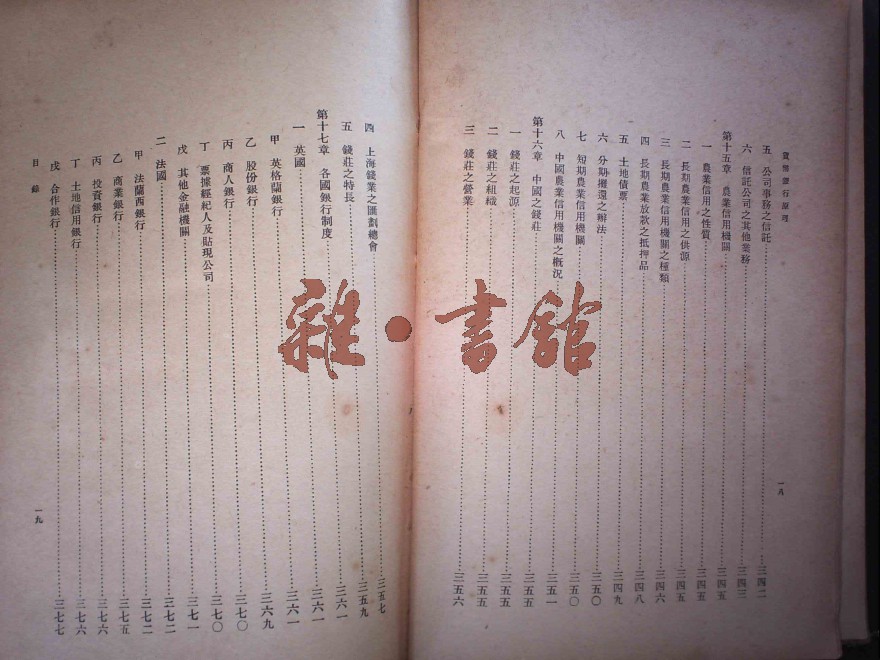 貨幣銀行原理
一八
五 公司事務之信託……三四二
六 信託公司之其他業務……三四三
第十五章 農業信用機關……三四五
一 農業信用之性質……三四五
二 長期農業信用之供源……三四五
三 長期農業信用機關之種類……三四六
四 長期農業放款之抵押品……三四八
五 土地債票……三四九
六 分期攤還之辦法……三五〇
七 短期農業信用機關……三五〇
八 中國農業信用機關之概況……三五一
第十六章 中國之錢莊……三五五
一 錢莊之起源……三五五
二 錢莊之組織……三五五
三 錢莊之營業……三五六
四 上海錢業之匯劃總會……三五七
五 錢莊之特長……三五九
第十七章 各國銀行制度……三六一
一 英國……三六一
甲 英格蘭銀行……三六一
乙 股份銀行……三六九
丙 商人銀行……三七〇
丁 票據經紀人及貼現公司……三七〇
戊 其他金融機關……三七一
二 法國……三七二
甲 法蘭西銀行……三七二
乙 商業銀行……三七五
丙 投資銀行……三七六
丁 土地信用銀行……三七六
戊 合作銀行……三七七
目錄
一九
雜·書館